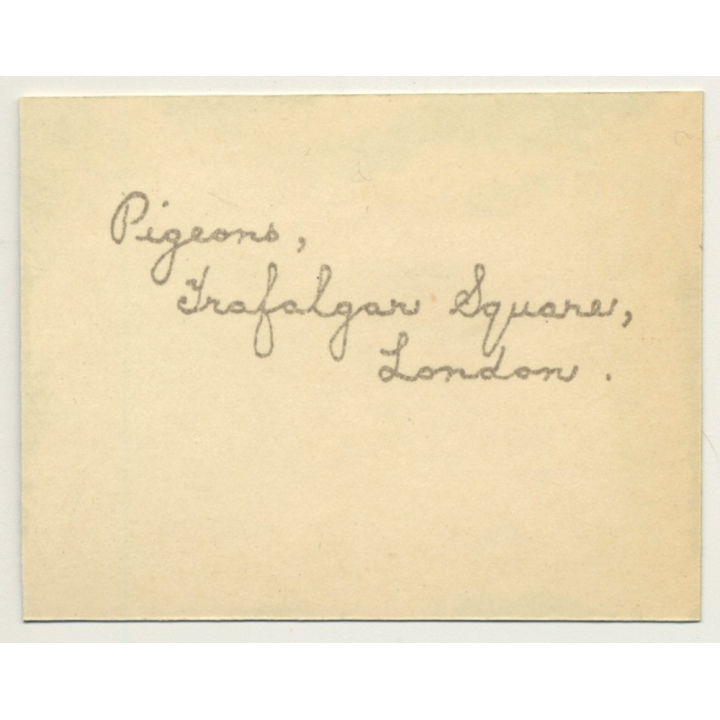 Pigeons,
Trafalgar Square,
London.